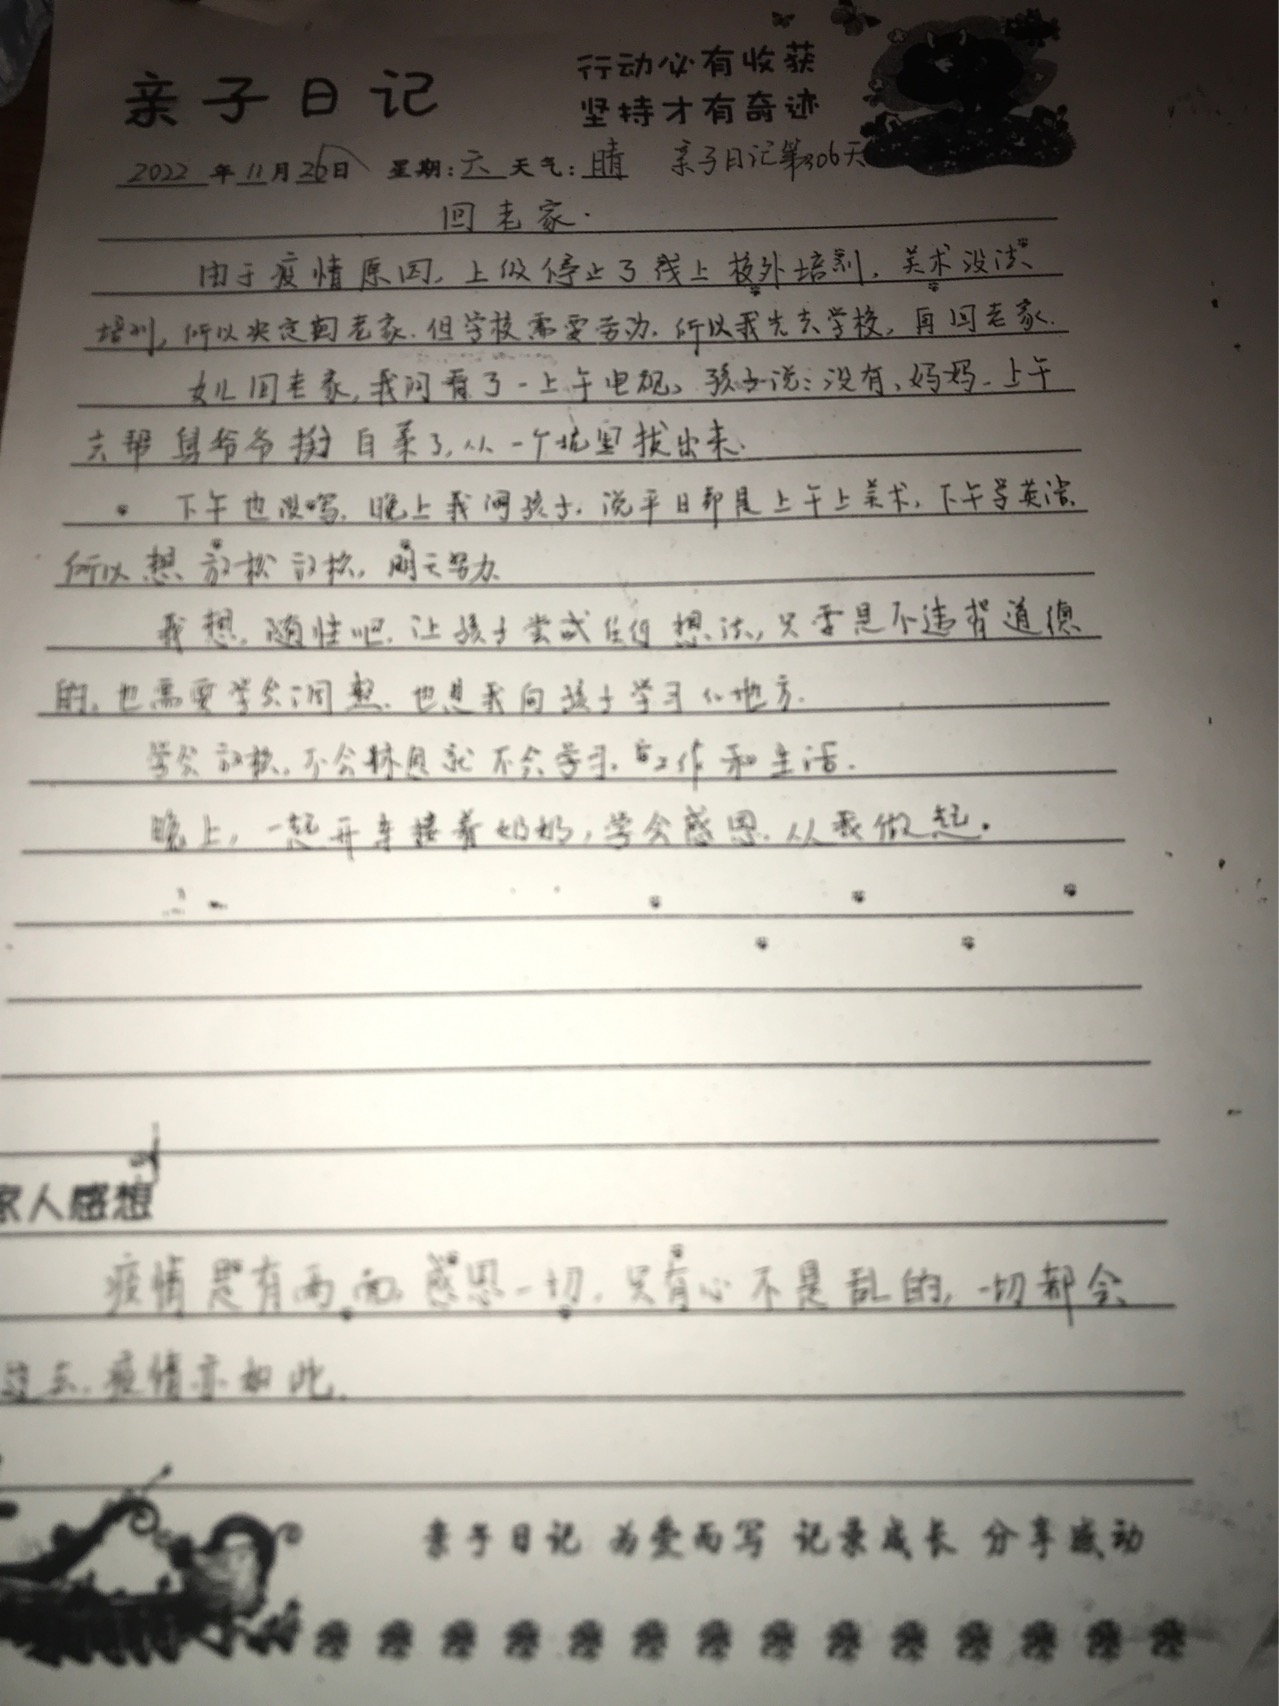 亲子日记
行动必有收获
坚持才有奇迹
2022年11月26日 星期:六 天气:晴 亲子日记第306天
回老家.
由于疫情原因,上级停止了线上校外培训,美术没法
培训,所以决定回老家.但学校需要劳动.所以我先去学校,再回老家.
女儿回老家,我问看了一上午电视,孩子说:没有,妈妈.上午
去帮舅爷爷 白菜了,从一个坑里拔出来.
下午也没写.晚上我问孩子,说平日都是上午上美术,下午学英语.
所以想放松放松,明天努力.
我想,随性吧.让孩子尝试任何想法,只要是不违背道德
的.也需要学会调整.也是我向孩子学习的地方.
学会放松,不会休息就不会学习.工作和生活.
晚上,一起开车接着奶奶,学会感恩.从我做起.
家人感想
疫情是有两面,感恩一切.只有心不是乱的,一切都会
过去.疫情亦如此.
亲子日记 为爱而写 记录成长 分享感动